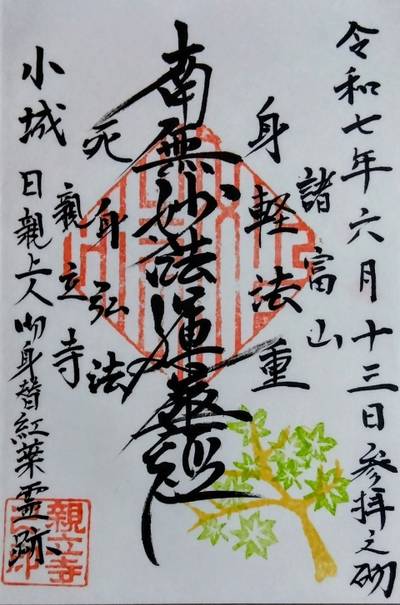 令和七年六月十三日参拝之砌
諸富山
身軽法重
南無妙法蓮華経
死身弘法
親立寺
小城 日親上人御身替紅葉霊跡
親立寺